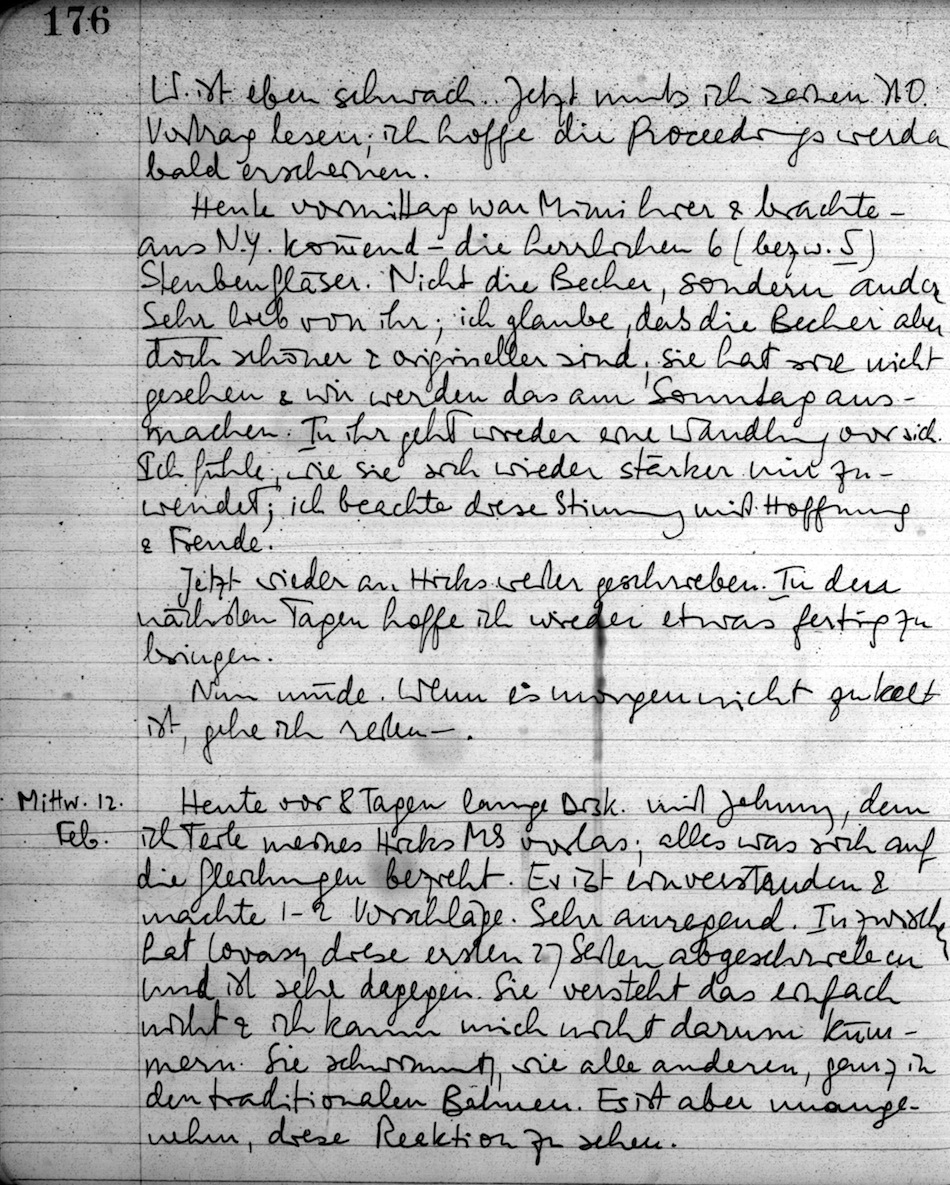 176
W. ist eben schwach.. Jetzt muß ich seinen N.O.
Vortrag lesen; ich hoffe die Proceedings werden
bald erscheinen.
Heute vormittag war Mimi hier & brachte –
aus N.Y. kom̄end – die herrlichen 6 (bezw. 5)
Steubengläser. Nicht die Becher, sondern andere
Sehr lieb von ihr; ich glaube, daß die Becher aber
doch schöner & origineller sind; sie hat sie nicht
gesehen & wir werden das am Sonntag aus-
machen. In ihr geht wieder eine Wandlung vor sich.
Ich fühle, wie sie sich wieder stärker mir zu-
wendet; ich beachte diese Stimmung mit Hoffnung
& Freude.
Jetzt wieder an Hicks weiter geschrieben. In den
nächsten Tagen hoffe ich wieder etwas fertig zu
bringen.
Nun müde. Wenn es morgen nicht zu kalt
ist, gehe ich reiten –.
Mittw. 12.
Feb.
Heute vor 8 Tagen lange Disk. mit Johnny, dem
ich Teile meines Hicks MS vorlas; alles was sich auf
die Gleichungen bezieht. Er ist einverstanden &
machte 1–2 Vorschläge. Sehr anregend. Inzwischen
hat Lovasy diese ersten 27 Seiten abgeschrieben
und ist sehr dagegen. Sie versteht das einfach
nicht & ich kann mich nicht darum küm-
mern. Sie schwimmt, wie alle anderen, ganz in
den traditionalen Bahnen. Es ist aber unange-
nehm, diese Reaktion zu sehen.